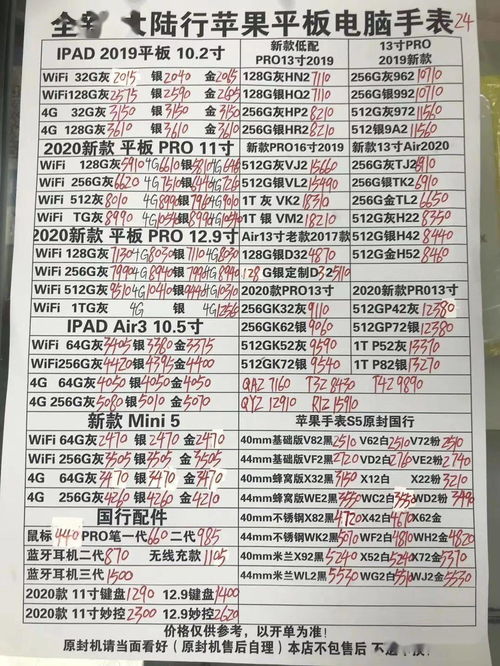 大陆行苹果平板电脑手表 24
IPAD 2019平板 10.2寸
WiFi 32G灰2015 银2040 金2015
WiFi128G灰2575 银2590 金2605
4G 32G灰3150 银3150 金3150
4G 128G灰3610 银3610 金3610
2020新款 平板 PRO 11寸
WiFi 128G灰5910 4G6610 银5810 4G
WiFi 256G灰6620 4G7510 银
WiFi 512灰8010 4G 银 4G9010
WiFi TG灰8990 4G 银
2020新款 平板 PRO 12.9寸
WiFi 128G灰7130 4G8030 银7110 4G8030
WiFi 256G灰7990 4G8940 银
WiFi 512G灰9510 4G10410 银
WiFi 1TG灰 4G 银 4G
IPAD Air3 10.5寸
WiFi 64G灰3405 银3380 金3375
WiFi256G灰4420 银4395 金4400
4G 64G灰4050 银4050 金4050
4G 256G灰5080 银5010 金5070
新款 Mini 5
WiFi 64G灰2470 银2470 金2470
WiFi 256G灰3505 银3505 金3505
4G 64G灰3470 银3470 金3470
4G 256G灰4260 银4260 金4210
国行配件
鼠标440 PRO笔一代660 二代985
蓝牙耳机二代870 无线充裁1105
蓝牙耳机三代1500
2020款 11寸键盘1290 12.9键盘1400
2020款 11寸妙控2300 12.9妙控2620
新款低配
PRO13寸2019
128G灰HN2 7110
128G银HQ2 7110
256G灰HP2 8210
256G银HR2 8210
新款PRO16寸2019
512G灰VJ2 15660
512G银VL2 15490
1T 灰 VK2 18310
1T 银 VM2 18210
Air13寸老款2017款
128G银D32 4870
128G银定制D32 5110
2020款PRO13寸
256GK32灰9110
256GK62银9060
512GK52灰9590
512GK72银9540
13寸PRO
2019新款
256G灰962 10710
256G银992 10710
512G灰972 11560
512银9A2 11560
新款13寸Air2020
256G灰TJ2 6910
256G银TK2 6910
256G金TL2 6650
512G灰H22 8350
512G银H42 8440
512G金H52 8460
2020新款PR013寸
512GP42灰12380
512GP72银12380
1T P52灰13370
1T P82银13270
QAZ 7160 T3Z 8430 T4Z 9890
QYZ 12910 R1Z 15910
苹果手表S5原封国行
40mm基础版V82黑2510 V62白2510 V72粉2510
44mm基础版VF2黑2720 VD2白2760 VE2粉2740
40mm蜂窝版X32黑3150 X12白 X22粉3210
44mm蜂窝版WE2黑3550 WC2白3550 WD2粉3490
40mm不锈钢X82黑4720 X42白4670 X62金
44mm不锈钢WK2黑5070 WF2白4810 WH2金4820
40mm米兰X92黑5240 X52白5240 X72金5370
44mm米兰WL2黑5530 WG2白5510 WJ2金5530
价格仅供参考，以开单为准！
原封机请当面看好（原封机售后自理）本店不包售后